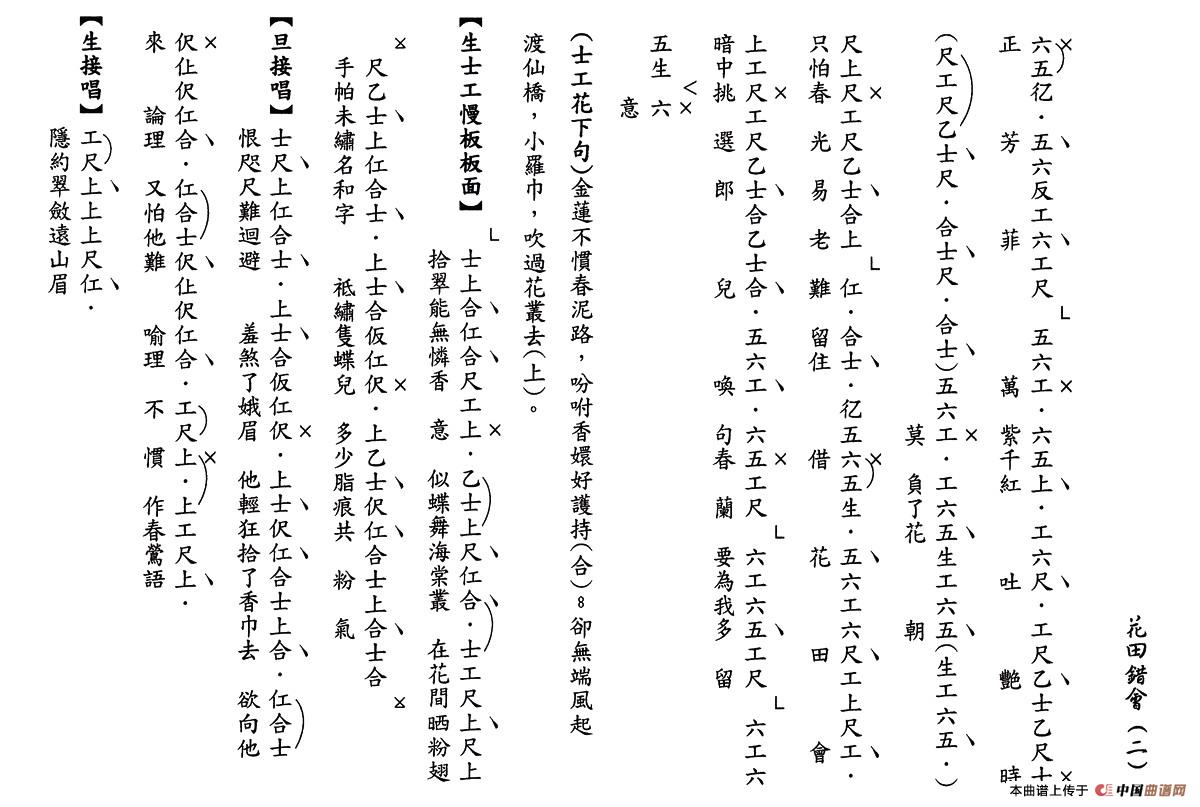 花田錯會(二)
六五亿.五六反工六工尺 五六工.六五上.工六尺.工尺乙士乙尺士
正芳菲萬紫千紅吐艷時
(尺工尺乙士尺.合士尺.合士)五六工.工六五生工六五(生工六五.)
莫負了花朝
尺上尺工尺乙士合上 仩.合士.亿五六五生.五六工六尺工上尺工.
只怕春光易老難留住借花田會
上工尺工尺乙士合乙士合.五六工.六五工尺 六工六五工尺 六工六
暗中挑選郎兒喚句春蘭要為我多留
五生六
意
(士工花下句)金蓮不慣春泥路,吩咐香嬛好護持(合)。卻無端風起
渡仙橋,小羅巾,吹過花叢去(上)。
【生士工慢板板面】 士上合仜合尺工上.乙士上尺仜合.士工尺上尺上
拾翠能無憐香意似蝶舞海棠叢在花間晒粉翅
尺乙士上仜合士.上士合仮仜伬.上乙士伬仜合士上合士合
手帕未繡名和字祗繡隻蝶兒多少脂痕共粉氣
【旦接唱】士尺上仜合士.上士合仮仜伬.上士伬仜合士上合.仜合士
恨咫尺難迴避羞煞了娥眉他輕狂拾了香巾去欲向他
伬仩伬仜合.仜合士伬仩伬仜合.工尺上.上工尺上.
來論理又怕他難喻理不慣作春鶯語
【生接唱】工尺上上上尺仜.
隱約翠斂遠山眉
本曲谱上传于 中国曲谱网